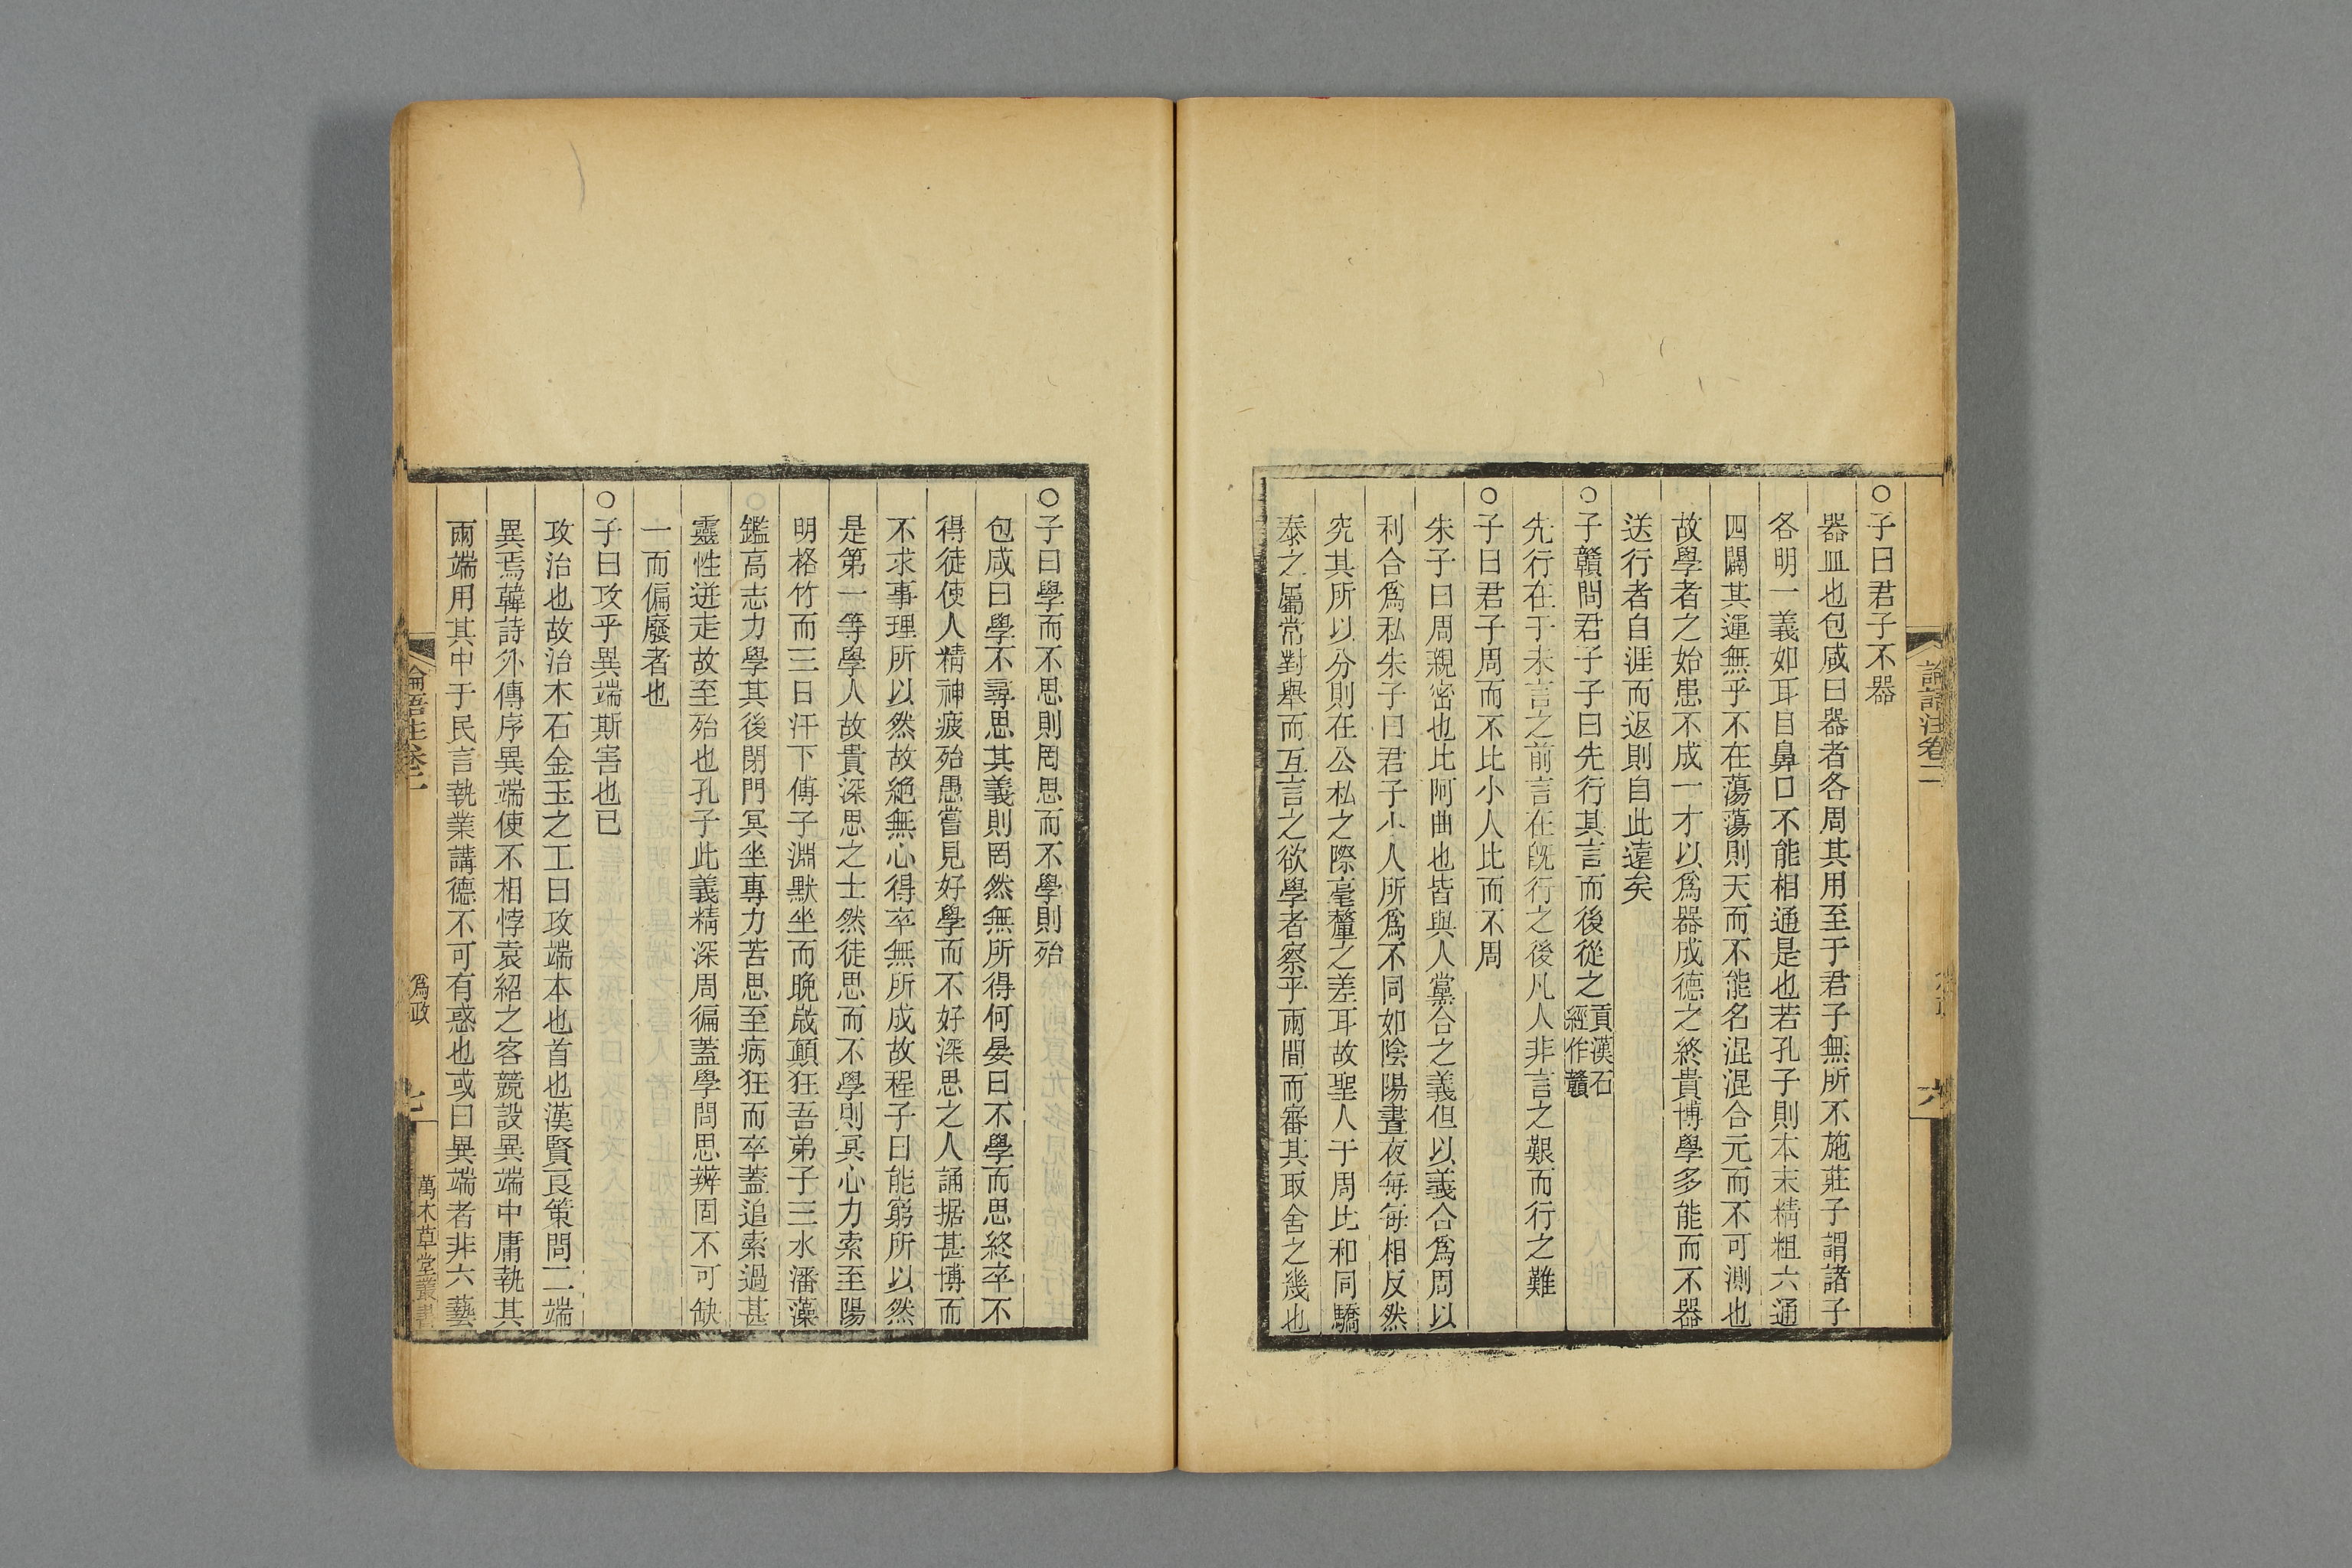 論語注卷二
六
○子曰君子不器
器皿也包咸曰器者各周其用至于君子無所不施莊子謂諸子
各明一義如耳目鼻口不能相通是也若孔子則本末精粗六通
四闢其運無乎不在蕩蕩則天而不能名混混合元而不可測也
故學者之始患不成一才以爲器成德之終貴博學多能而不器
送行者自涯而返則自此遠矣
○子贛問君子子曰先行其言而後從之貢漢石經作贛
先行在于未言之前言在既行之後凡人非言之艱而行之難
○子曰君子周而不比小人比而不周
朱子曰周親密也比阿曲也皆與人黨合之義但以義合爲周以
利合爲私朱子曰君子小人所爲不同如陰陽晝夜每每相反然
究其所以分則在公私之際毫釐之差耳故聖人于周比和同驕
泰之屬常對舉而互言之欲學者察乎兩間而審其取舍之幾也
○子曰學而不思則罔思而不學則殆
包咸曰學不尋思其義則罔然無所得何晏曰不學而思終卒不
得徒使人精神疲殆愚嘗見好學而不好深思之人誦据甚博而
不求事理所以然故絕無心得卒無所成故程子曰能窮所以然
是第一等學人故貴深思之士然徒思而不學則冥心力索至陽
明格竹而三日汗下傅子淵默坐而晚歲顛狂吾弟子三水潘藻
鑑高志力學其後閉門冥坐專力苦思至病狂而卒蓋追索過甚
靈性迸走故至殆也孔子此義精深周徧蓋學問思辨固不可缺
一而偏廢者也
○子曰攻乎異端斯害也已
攻治也故治木石金玉之工曰攻端本也首也漢賢良策問二端
異焉韓詩外傳序異端使不相悖袁紹之客競設異端中庸執其
兩端用其中于民言執業講德不可有惑也或曰異端者非六藝
論語注卷二
爲政
七
萬木草堂叢書